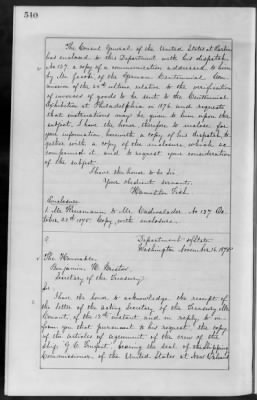 540
The Consul General of the United States at Berlin
has enclosed to this Department with his dispatch
No 137, a copy of a communication addressed to him
by Mr Jacobi of the German Centennial Com-
mission of the 20th ultimo relative to the verification
of invoices of goods to be sent to the Centennial
Exhibition at Philadelphia in 1876 and requests
that instructions may be given to him upon the
subject. I have the honor, therefore to enclose for
your information, herewith a copy of his dispatch to-
gether with a copy of the enclosure which ac-
companied it and to request your consideration
of the subject.
I have the honor to be Sir,
Your obedient servant,
Hamilton Fish
Enclosure:
1. Mr Kreismann to Mr Cadwalader No 137 Oc-
tober 25th 1875. Copy with enclosure.
Department of State
Washington November 16 1875
The Honorable
Benjamin H. Bristow
Secretary of the Treasury
Sir:
I have the honor to acknowledge the receipt of
the letter of the acting Secretary of the Treasury Mr
Conant, of the 13th instant and in reply to in-
form you that pursuant to his request the copy
of the articles of agreement of the crew of the
ship bearing the seal of the Shipping
Commissioner of the United States at New Orleans